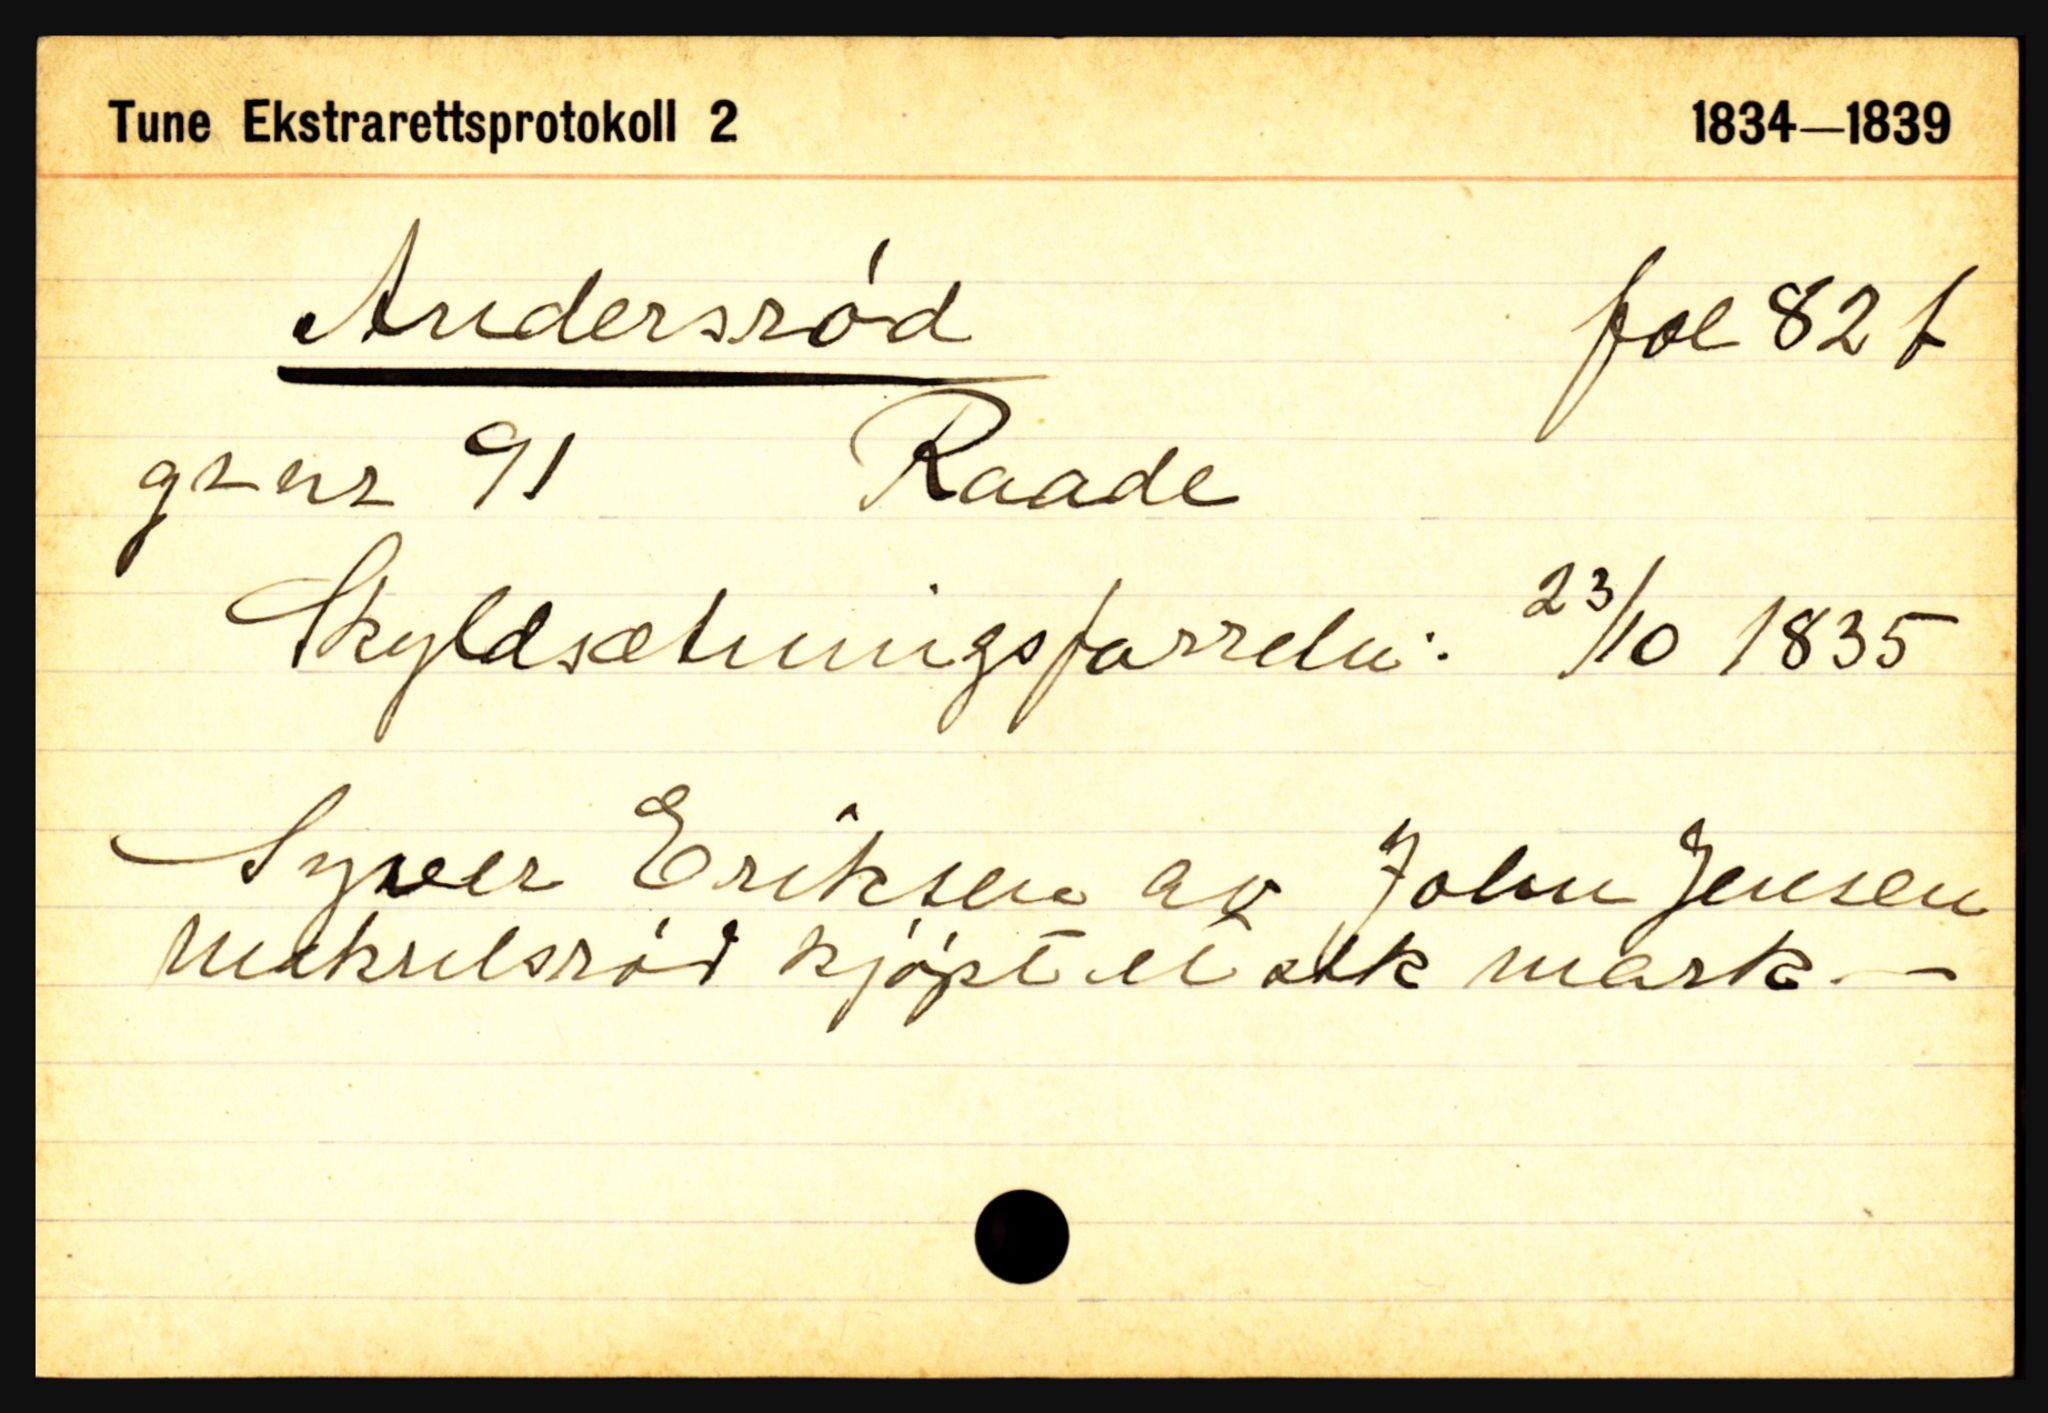 Tune Ekstrarettsprotokoll 2 1834—1839
Andersród fol 82 f
gr nr 91 Raade
Skyldsætningsforretn: 23/10 1835
Syver Eriksen av John Jensen
kjópt et stk mark. —